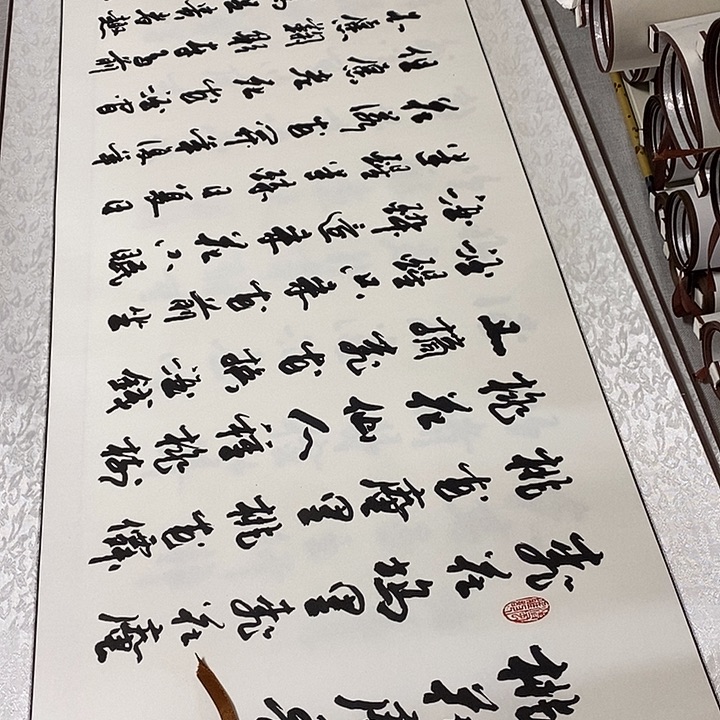 桃花塢里桃花庵
桃花庵里桃花仙
桃花仙人種桃樹
又摘桃花換酒錢
酒醒只來花前坐
酒醉還來花下眠
半醒半醉日復日
花落花開年復年
但願老死花酒間
不願鞠躬車馬前